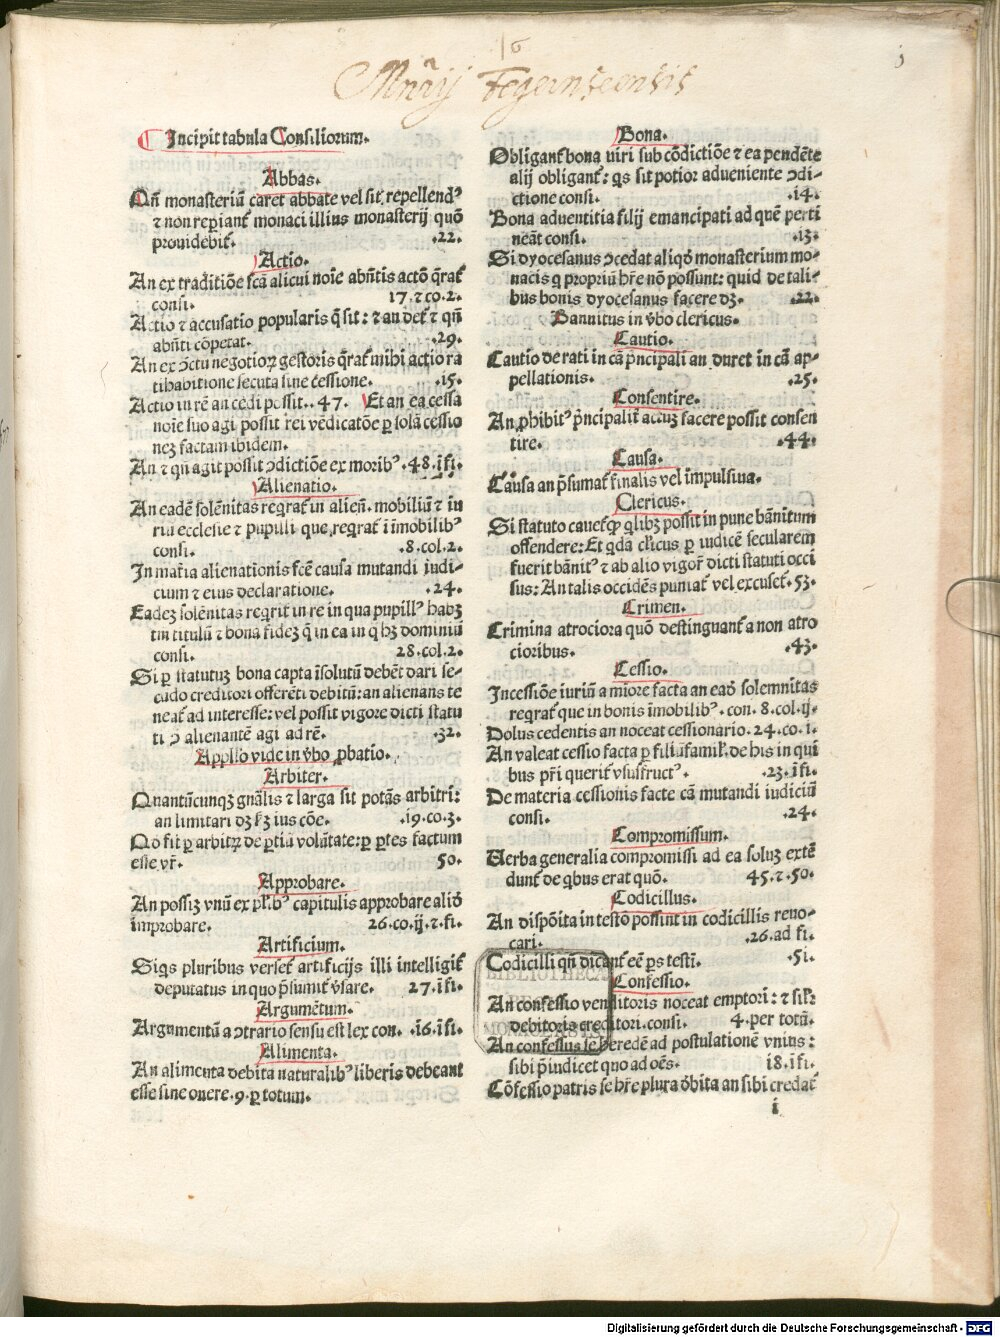 16
Mnrij Tegernseensis
Incipit tabula Consiliorum.
Abbas.
Qn̄ monasteriū caret abbate vel sit repellendꝰ
⁊ non repiant̄ monaci illius monasterij quō
prouidebit̄. .22.
Actio.
An ex traditiōe fcā alicui noīe abn̄tis actō q̄rat̄
consi. 17.⁊ co.2.
Actio ⁊ accusatio popularis q̄ sit: ⁊ an det̄ ⁊ qn̄
abn̄ti cōpetat. .29.
An ex ꝯctu negotioꝝ gestoris q̄rat̄ mihi actio ra
tihabitione secuta sine cessione. .15.
Actio in rē an cedi possit..47. Et an ea cessa
noīe suo agi possit rei vēdicatōe ꝑ solā cessio
neꝫ factam ibidem.
An ⁊ qn̄ agit possit ꝯdictiōe ex moribꝰ.48.ī fi.
Alienatio.
An eadē solēnitas reqrat̄ in alien̄. mobiliū ⁊ iu
riū ecclesie ⁊ pupilli que reqrat̄ ī īmobilibꝰ
consi. .8.col.2.
In mat̄ia alienationis fcē causa mutandi iudi-
cium ⁊ eius declaratione. .24.
Eadeꝫ solēnitas reqrit̄ in re in qua pupillꝰ habꝫ
tm̄ titulū ⁊ bonā fideꝫ q̄ in ea in q hꝫ dominiū
consi. 28.col.2.
Si ꝑ statutuꝫ bona capta īsolutū debēt dari se-
cūdo creditori offerēti debitū: an alienans te
neat̄ ad interesse: vel possit vigore dicti statu
ti ꝯ alienantē agi ad rē. .32.
Appl̄o vide in v̄bo ꝓbatio.
Arbiter.
Quantūcunqꝫ gn̄alis ⁊ larga sit potās arbitri:
an limitari dꝫ ẜꝫ ius cōe. .19.co.3.
Qō fit ꝑ arbitꝝ de ꝑtiū volūtate: ꝑ ꝑtes factum
esse vr̄. 50.
Approbare.
An possiꝫ vnū ex pl'ibꝰ capitulis approbare aliō
improbare. 26.co.ij.⁊.fi.
Artificium.
Siqs pluribus verset̄ artificijs illi intelligit̄
deputatus in quo p̄sumit̄ v̄sare. 27.ī fi.
Argumētum.
Argumentū a ꝯtrario sensu est lex con. .16.ī fi.
Alimenta.
An alimenta debita naturalibꝰ liberis debeant
esse sine onere.9.ꝑ totum.
Bona.
Obligant̄ bona viri sub cōdictiōe ⁊ ea pendēte
alij obligant̄: qs sit potior adueniente ꝯdi-
ctione consi. .14.
Bona aduentitia filij emancipati ad quē perti
neāt consi. .13.
Si dyocesanus ꝯcedat aliqō monasterium mo-
nacis q propriū hr̄e nō possunt: quid de tali-
bus bonis dyocesanus facere dꝫ. .22.
Bannitus in v̄bo clericus.
Cautio.
Cautio de rati in cā p̄ncipali an duret in cā ap-
pellationis. .25.
Consentire.
An ꝓhibitꝰ p̄ncipalit̄ actuꝫ facere possit consen
tire. .44.
Causa.
Causa an p̄sumat̄ finalis vel impulsiua.
Clericus.
Si statuto cauet̄ ꝙ qlibꝫ possit in pune bānitum
offendere: Et qdā cl'icus ꝑ iudicē secularem
fuerit bānit̄ ⁊ ab alio vigor̄ dicti statuti occi
sus: An talis occidēs puniat̄ vel excuset̄.53.
Crimen.
Crimina atrociora quō destinguant̄ a non atro
cioribus. .43.
Cessio.
In cessiōe iuriū a miore facta an eadē solemnitas
reqrat̄ que in bonis īmobilibꝰ. con. 8.col.ij.
Dolus cedentis an noceat cessionario.24.co.1.
An valeat cessio facta ꝑ filiū famil'. de his in qui
bus pr̄i querit̄ vsufructꝰ. .23.ī fi.
De materia cessionis facte cā mutandi iudiciū
consi. .24.
Compromissum.
Verba generalia compromissi ad ea soluꝫ extē
dunt̄ de qbus erat quō. 45.⁊.50.
Codicillus.
An dispōita in testō possint in codicillis reuo-
cari. .26.ad fi.
Codicilli qn̄ dicant̄ eē ꝑs testi. .51.
Confessio.
An confessio venditoris noceat emptori: ⁊ sil'r
debitoris creditori.consi. 4.per totū.
An confessus se heredē ad postulationē vnius:
sibi p̄iudicet quo ad oēs. 18.ī fi.
Cōfessio patris se hr̄e plura d̄bita an sibi credat̄
i
BIBLIOTHECA
MONACENSIS
Digitalisierung gefördert durch die Deutsche Forschungsgemeinschaft - DFG